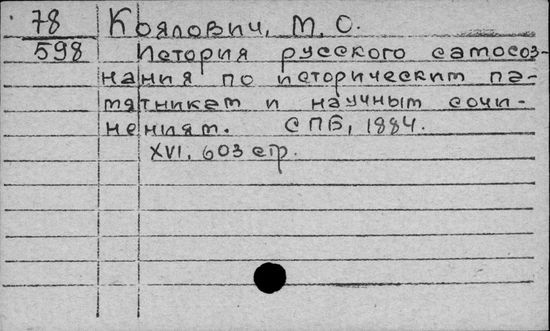 78 Коялович, М. О.
598 История русского самосоз-
нания по историческим па-
мятникам и научным сочи-
нениям. СПБ, 1884.
XVI, 603 стр.